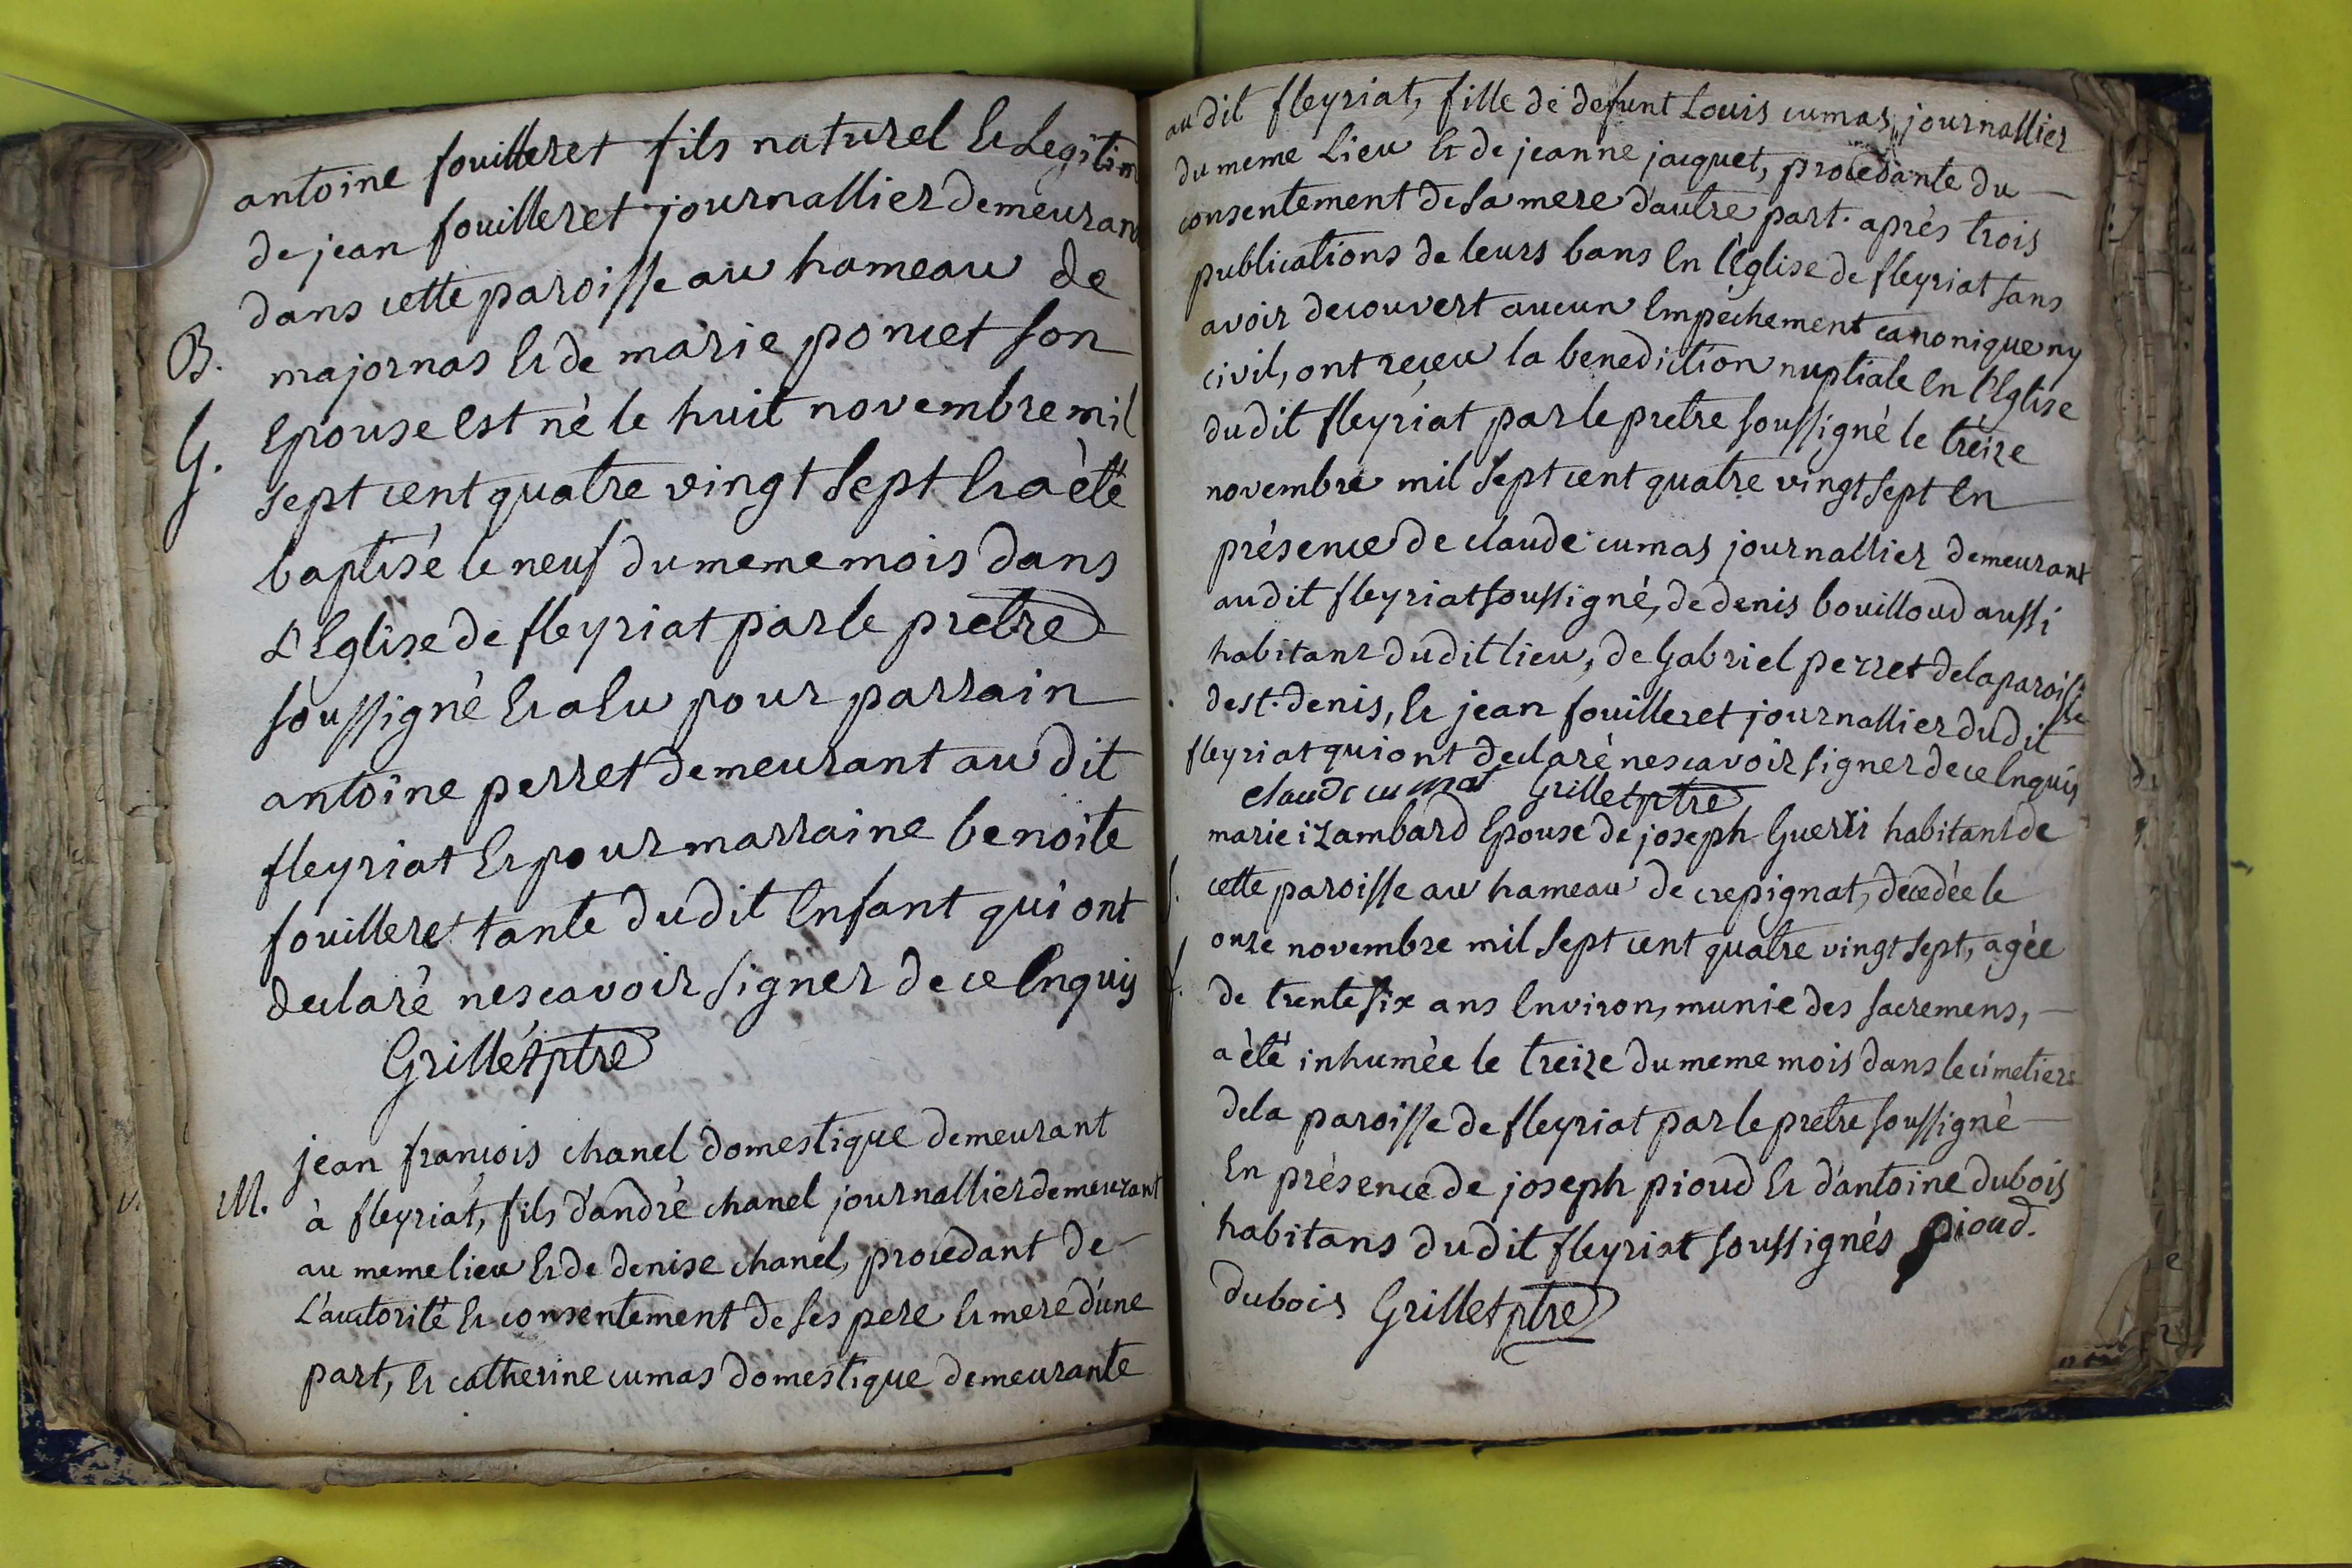 antoine fouilleret fils naturel et Legitim
de jean fouilleret journallier demeuran
dans cette paroisse au hameau de
B. majornas et de marie poncet son
G. epouse est nè le huit novembre mil
sept cent quatre vingt sept et a èté
baptisé le neuf du meme mois dans
L'Eglise de fleyriat par le pretre
soussigné et a eu pour parrain
antoine perret demeurant au dit
fleyriat et pour marraine benoite
fouilleret tante du dit enfant qui ont
declaré ne scavoir signer de ce enquis
Grillet ptre
jean francois chanel domestique demeurant
M. à fleyriat, fils d'andré chanel journallier demeurant
au meme lieu et de denise chanel, procedant de
L'auctorité et consentement de ses pere et mere d'une
part, et catherine cumas domestique demeurante
au dit fleyriat, fille de defunt Louis cumas journallier
du meme Lieu et de jeanne jacquet, procedante du
consentement de sa mere d'autre part. après trois
publications de leurs bans en l'Eglise de fleyriat sans
avoir decouvert aucun empechement canonique ny
civil, ont reçeu la benediction nuptiale en l'Eglise
du dit fleyriat par le pretre soussigné le treize
novembre mil sept cent quatre vingt sept en
présence de claude cumas journallier demeurant
au dit fleyriat soussigné, de denis bouilloud aussi
habitant du dit lieu, de Gabriel perret de la paroisse
de st. denis, et jean fouilleret journallier du dit
fleyriat qui ont declaré ne scavoir signer de ce enquis
claude cumat Grillet ptre
marie izambard epouse de joseph Guerri habitant de
S. cette paroisse au hameau de crepignat, decedèe le
onze novembre mil sept cent quatre vingt sept, agèe
f. de trente six ans environ, munie des sacremens,
a èté inhumèe le treize du meme mois dans le cimetiere
de la paroisse de fleyriat par le pretre soussigné
en présence de joseph pioud et d'antoine dubois
habitans du dit fleyriat soussignés pioud.
dubois Grillet ptre